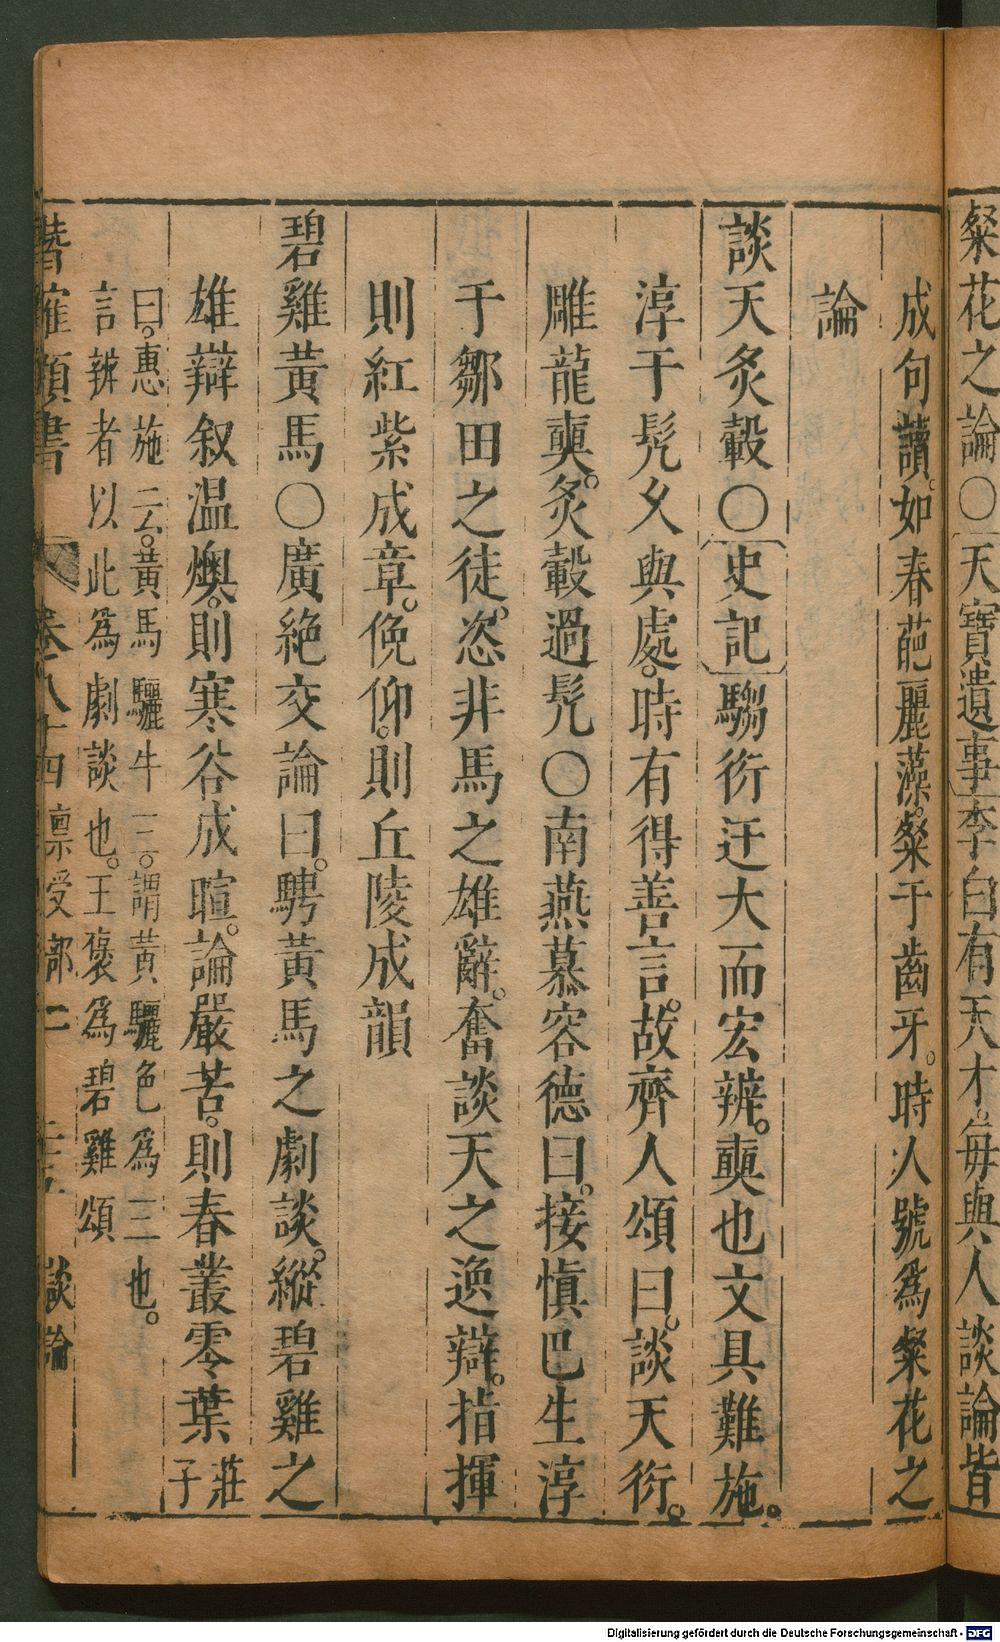 粲花之論○天寶遺事李白有天才。每與人談論皆
成句讀。如春葩麗藻。粲于齒牙。時人號爲粲花之
論
談天炙轂○史記騶衍迂大而宏辨。奭也文具難施。
淳于髠久與處。時有得善言。故齊人頌曰。談天衍。
雕龍奭。炙轂過髠○南燕慕容德曰。接愼巴生淳
于鄒田之徒。恣非馬之雄辭。奮談天之逸辯。指揮
則紅紫成章。俛仰。則丘陵成韻
碧雞黃馬○廣絶交論曰。騁黃馬之劇談。縱碧雞之
雄辯叙温燠。則寒谷成暄。論嚴苦。則春叢零葉莊子
曰。惠施云。黃馬驪牛三。謂黃驪色爲三也。
言辨者以此爲劇談也。王褒爲碧雞頌
卷八十四 稟受部二 談論
Digitalisierung gefördert durch die Deutsche Forschungsgemeinschaft - DFG